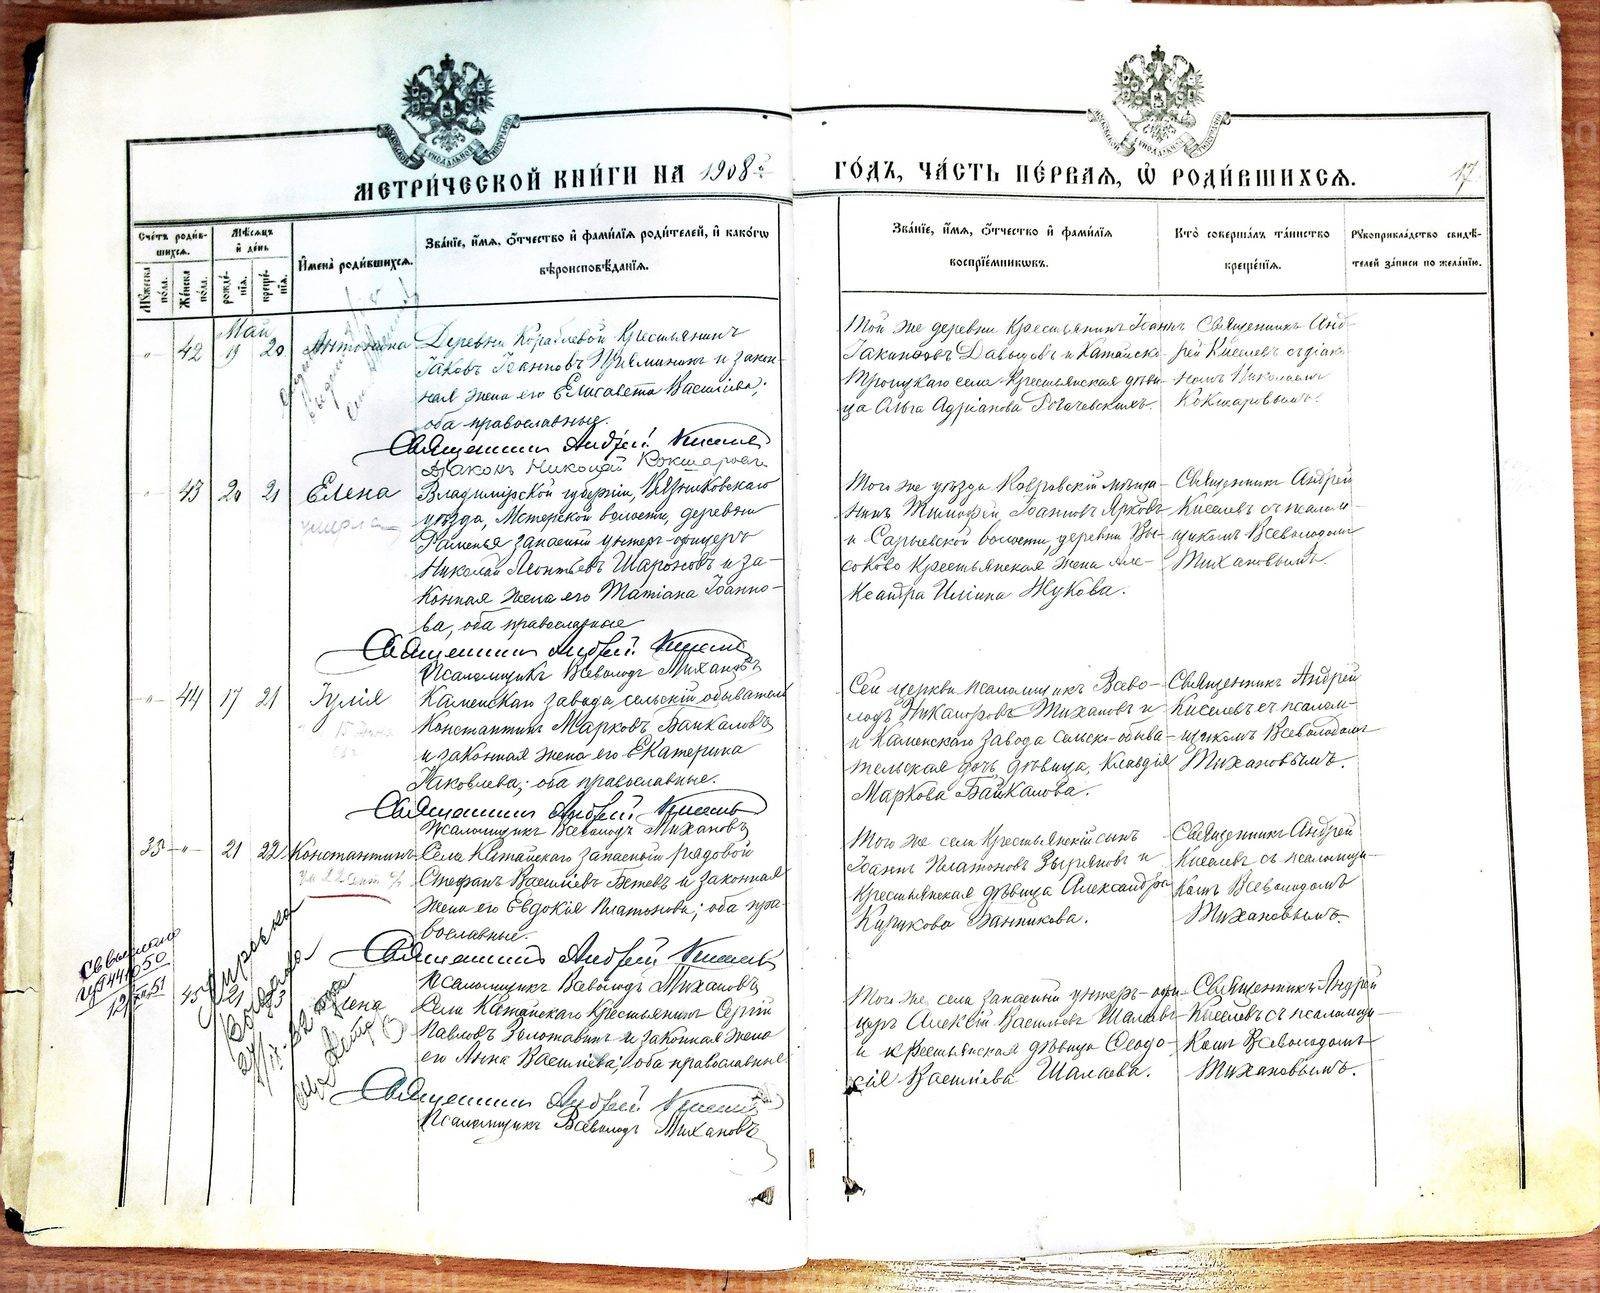 МЕТРИ́ЧЕСКОЙ КНИ́ГИ НА 1908 й
ГО́ДЪ, ЧА́СТЬ ПЕ́РВАѦ, Ѿ РОДИ́ВШИХСѦ.
17
Сче́тъ роди́в-
шихсѧ.
Мꙋ́жеска по́ла.
Же́нска по́ла.
Мѣ́сѧцъ и҆ де́нь
рожде́-
нїѧ.
креще́-
нїѧ.
И҆мена̀ роди́вшихсѧ.
Зва́нїе, и҆́мѧ, ѻ҆́тчество и҆ фами́лїѧ роди́телей, и҆ како́гѡ
вѣроисповѣ́данїѧ.
Зва́нїе, и҆́мѧ, ѻ҆́тчество и҆ фами́лїѧ
воспрїе́мникѡвъ.
Кто̀ соверша́лъ та́инство
креще́нїѧ.
Рꙋкоприкла́дство свидѣ́-
телей за́писи по жела́нїю.
Май
42 19 20 Антонина
Деревни Кораблевой Крестьянинъ
Іаковъ Іоанновъ и закон-
ная жена его Елисавета Васильева;
оба православные.
Священникъ Андрей Киселевъ
Діаконъ Николай Кокшаровъ
Той же деревни Крестьянинъ Іоаннъ
Давыдовъ и Катайско-
Троицкаго села Крестьянская дѣви-
ца Ольга Адріанова
Священникъ Анд-
рей Киселевъ съ діако-
номъ Николаемъ
Кокшаровымъ.
43 20 21 Елена
умерла
Владимірской губерніи, Вязниковскаго
уѣзда, Мстерской волости, деревни
Раменья запасный унтеръ-офицеръ
Николай Леонтьевъ Шароновъ и за-
конная жена его Татіана Іоанно-
ва, оба православные
Священникъ Андрей Киселевъ
Псаломщикъ Всеволодъ Тихановъ
Того же уѣзда Ковровскій мѣща-
нинъ Тимофей Іоанновъ Ярковъ
и Сарыевской волости, деревни Вы-
соково Крестьянская жена Але-
ксандра Ильина Жукова.
Священникъ Андрей
Киселевъ съ псалом-
щикомъ Всеволодомъ
Тихановымъ.
44 17 21 Іулія
Каменскаго завода сельскій обыватель
Константинъ Марковъ Байкаловъ
и законная жена его Екатерина
Іаковлева; оба православные.
Священникъ Андрей Киселевъ
Псаломщикъ Всеволодъ Тихановъ
Сей церкви псаломщикъ Всево-
лодъ Никаноровъ Тихановъ и
и Каменскаго завода сельско-обыва-
тельская дочь дѣвица, Клавдія
Маркова Байкалова.
Священникъ Андрей
Киселевъ съ псалом-
щикомъ Всеволодомъ
Тихановымъ.
35 21 22 Константинъ
Села Катайскаго запасный рядовой
Стефанъ Васильевъ и законная
жена его Евдокія Платонова; оба пра-
вославные.
Священникъ Андрей Киселевъ
Псаломщикъ Всеволодъ Тихановъ
Того же села Крестьянскій сынъ
Іоаннъ Платоновъ Зыряновъ и
Крестьянская дѣвица Александра
Священникъ Андрей
Киселевъ съ псаломщи-
комъ Всеволодомъ
Тихановымъ.
45 21 23 Елена
Села Катайскаго Крестьянинъ Сергій
Павловъ Золотавинъ и законная жена
его Анна Васильева; оба православные
Священникъ Андрей Киселевъ
Псаломщикъ Всеволодъ Тихановъ
Того же села запасный унтеръ-офи-
церъ Алексій Васильевъ Шалаевъ
и крестьянская дѣвица Ѳеодо-
сія Васильева Шалаева.
Священникъ Андрей
Киселевъ съ псаломщи-
комъ Всеволодомъ
Тихановымъ.